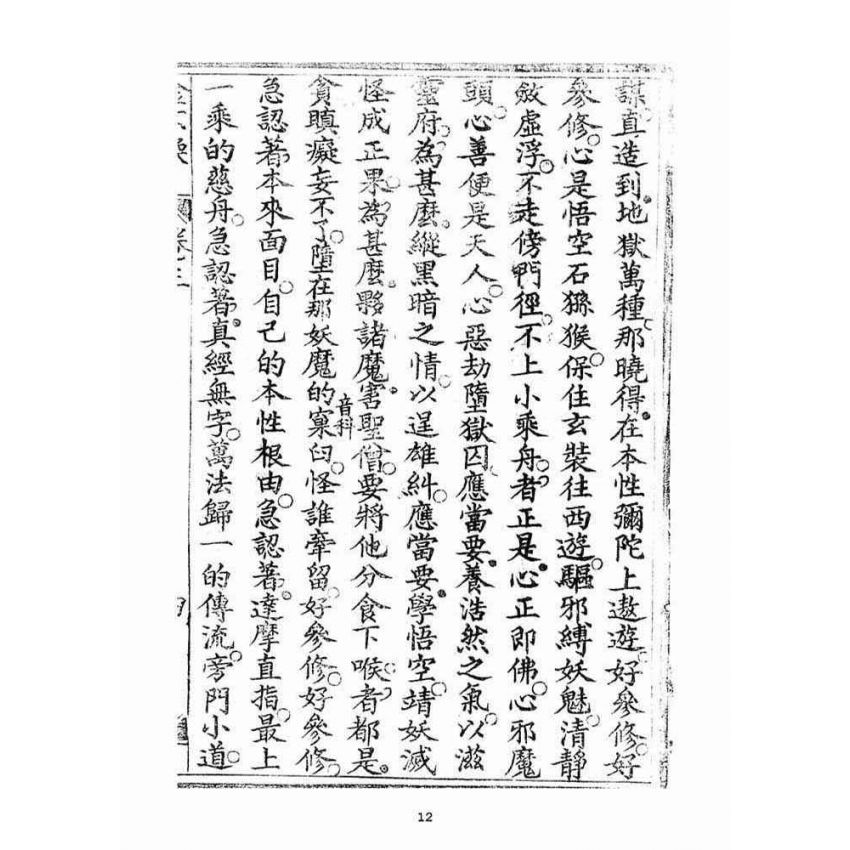 謀。直造到地獄萬種。那曉得。在本性彌陀上遨遊。好參修。好
參修。心是悟空石猻猴。保住玄裝往西遊。驅邪縛妖魅。清靜
斂虛浮。不走傍門徑。不上小乘舟。者正是。心正即佛。心邪魔
頭。心善便是天人。心惡劫墮獄囚。應當要。養浩然之氣。以滋
靈府。為甚麼。縱黑暗之情。以逞雄糾。應當要。學悟空。靖妖滅
怪成正果。為甚麼。夥諸魔。害聖僧。要將他分食下喉。者都是。
貪瞋癡妄不了。墮在那妖魔的窠臼。怪誰牽留。好參修。好參修。
音科
急認著。本來面目。自己的本性根由。急認著。達摩直指。最上
一乘的慈舟。急認著。真經無字。萬法歸一的傳流。旁門小道。
12